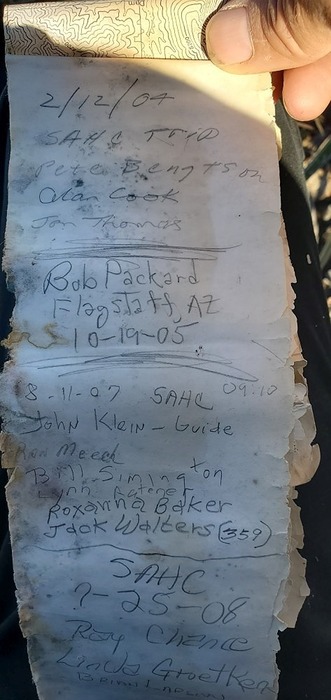 2/12/04
SAHC TRIP
Pete Bengtson
Alan Cook
Jon Thomas
Bob Packard
Flagstaff, AZ
10-19-05
8-11-07 SAHC 09:10
John Klein - Guide
Ron Meech
Bill Simington
Lynn
Roxanna Baker
Jack Walters (359)
SAHC
7-25-08
Roy Chance
Linda Groetken
Brian